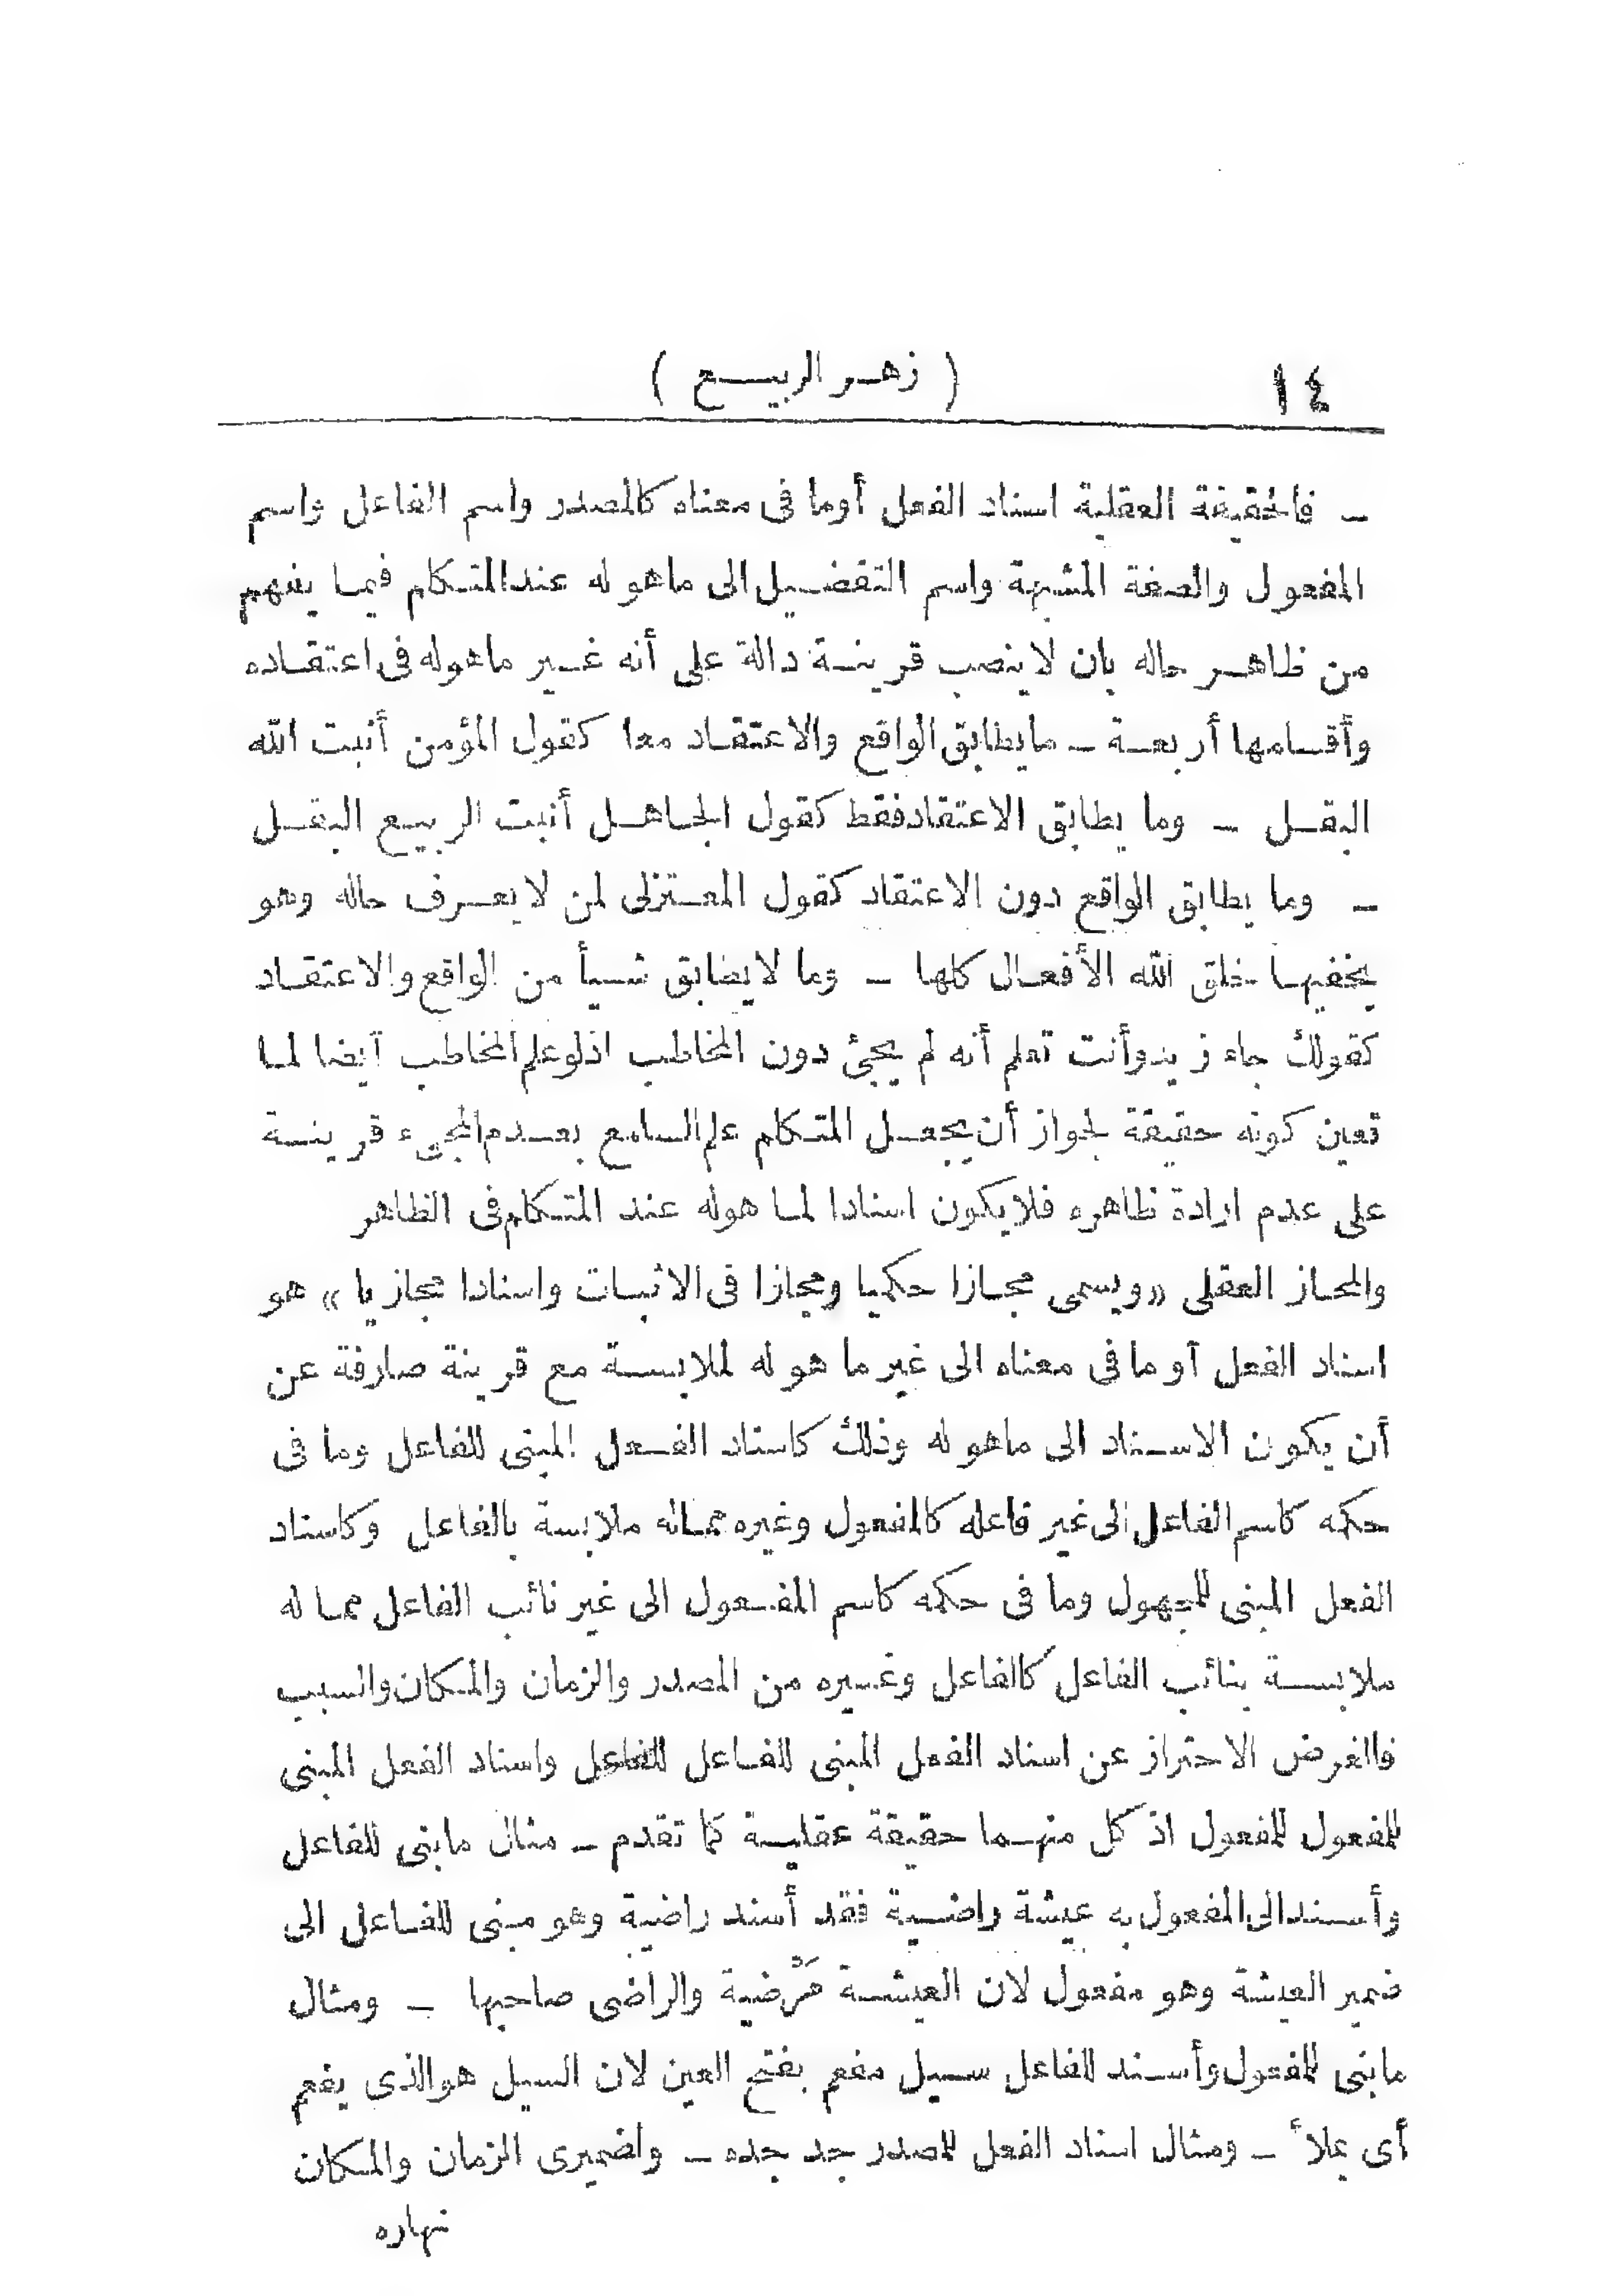 ١٤
( زهر الربيع )
ـ فالحقيقة العقلية اسناد الفعل أوما فى معناه كالمصدر واسم الفاعل واسم
المفعول والصفة المشبهة واسم التفضيل الى ماهو له عند المتكلم فيما يفهم
من ظاهر حاله بان لا ينصب قرينة دالة على أنه غير ماهوله فى اعتقاده
وأقسامها أربعة ـ مايطابق الواقع والاعتقاد معا كقول المؤمن أنبت الله
البقل ـ وما يطابق الاعتقاد فقط كقول الجاهل أنبت الربيع البقل
ـ وما يطابق الواقع دون الاعتقاد كقول المعتزلى لمن لا يعرف حاله وهو
يخفيها خلق الله الأفعال كلها ـ وما لا يطابق شيأ من الواقع والاعتقاد
كقولك جاء زيد وأنت تعلم أنه لم يجئ دون المخاطب اذ لو علم المخاطب أيضا لما
تعين كونه حقيقة لجواز أن يجعل المتكلم علم السامع بعدم المجىء قرينة
على عدم ارادة ظاهره فلا يكون اسنادا لما هوله عند المتكلم فى الظاهر
والمجاز العقلى «ويسمى مجازا حكميا ومجازا فى الاثبات واسنادا مجازيا» هو
اسناد الفعل أو ما فى معناه الى غير ما هو له لملابسة مع قرينة صارفة عن
أن يكون الاسناد الى ماهو له وذلك كاسناد الفعل المبنى للفاعل وما فى
حكمه كاسم الفاعل الى غير فاعله كالمفعول وغيره مماله ملابسة بالفاعل وكاسناد
الفعل المبنى للمجهول وما فى حكمه كاسم المفعول الى غير نائب الفاعل مما له
ملابسة بنائب الفاعل كالفاعل وغيره من المصدر والزمان والمكان والسبب
فالغرض الاحتراز عن اسناد الفعل المبنى للفاعل للفاعل واسناد الفعل المبنى
للمفعول للمفعول اذ كل منهما حقيقة عقلية كما تقدم ـ مثال مابنى للفاعل
وأسند الى المفعول به عيشة راضية فقد أسند راضية وهو مبنى للفاعل الى
ضمير العيشة وهو مفعول لان العيشة مَرْضية والراضى صاحبها ـ ومثال
مابنى للمفعول وأسند للفاعل سيل مفعم بفتح العين لان السيل هو الذى يفعم
أى يملأ ـ ومثال اسناد الفعل للمصدر جد جده ـ ولضميرى الزمان والمكان
نهاره